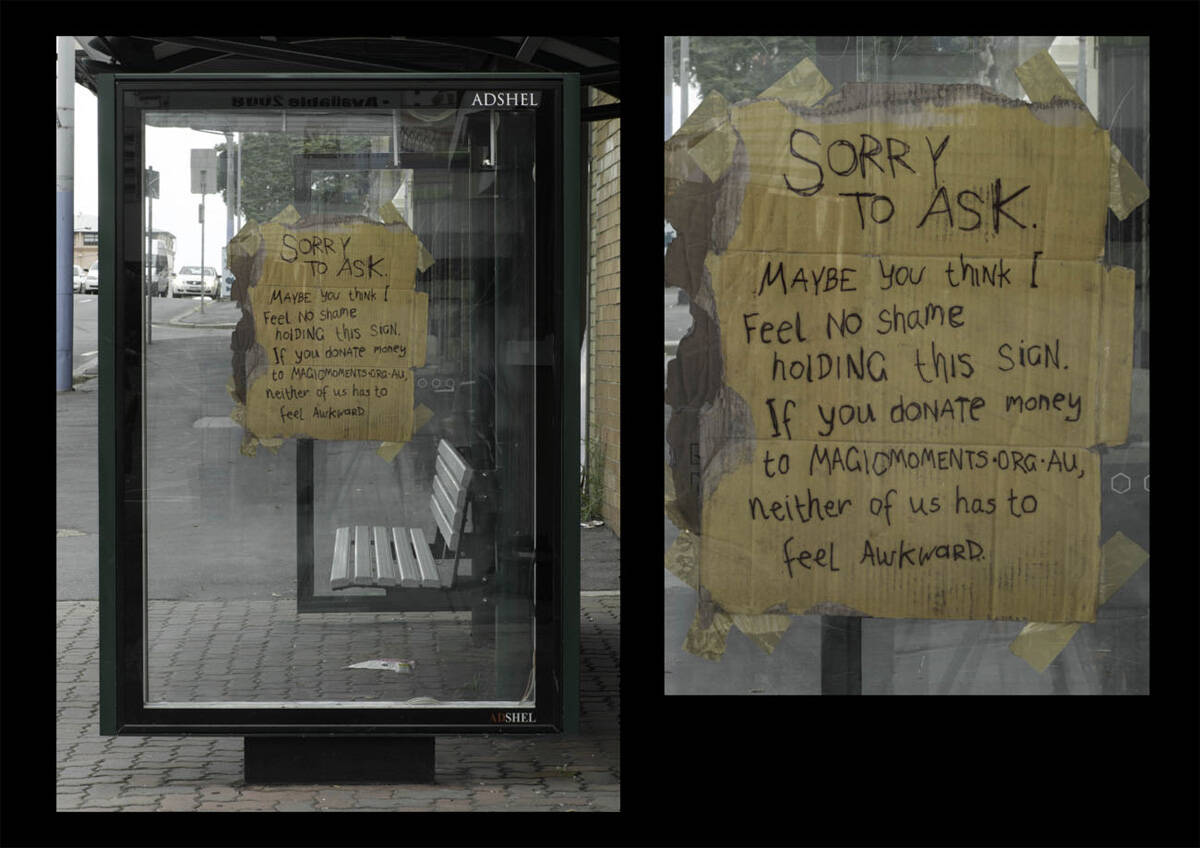 Available 2008
ADSHEL
SORRY
TO ASK.
MAYBE you thiNk I
Feel NO Shame
hOLDING this SiGN.
If you dONATe money
to MAGICMOMENTS·ORG·AU,
neither of us has to
feel AwkwarD.
ADSHEL
SORRY
TO ASK.
MAYBE you thiNk I
Feel NO Shame
hOLDING this SiGN.
If you dONATe money
to MAGICMOMENTS·ORG·AU,
neither of us has to
feel AwkwarD.